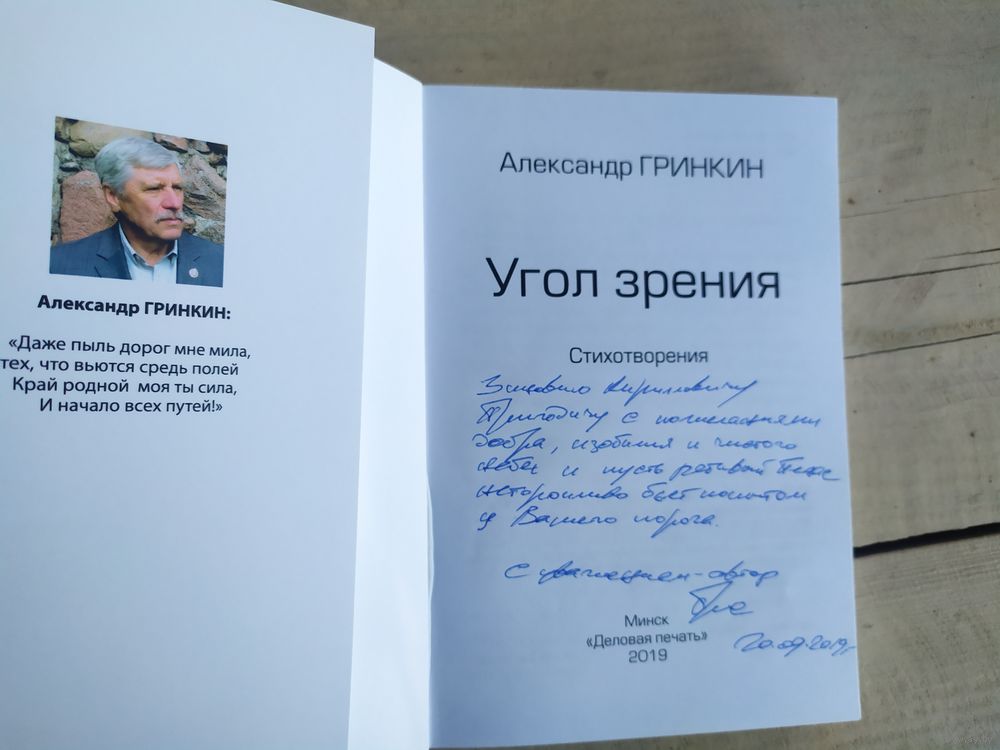 Александр ГРИНКИН:
«Даже пыль дорог мне мила,
тех, что вьются средь полей
Край родной моя ты сила,
И начало всех путей!»
Александр ГРИНКИН
Угол зрения
Стихотворения
Кирилловичу
с пожеланиями
добра, изобилия и чистого
неба и пусть ретивый
неторопливо бьет копытом
у Вашего порога.
С уважением-автор
Минск
«Деловая печать»
2019
20.09.2019г.